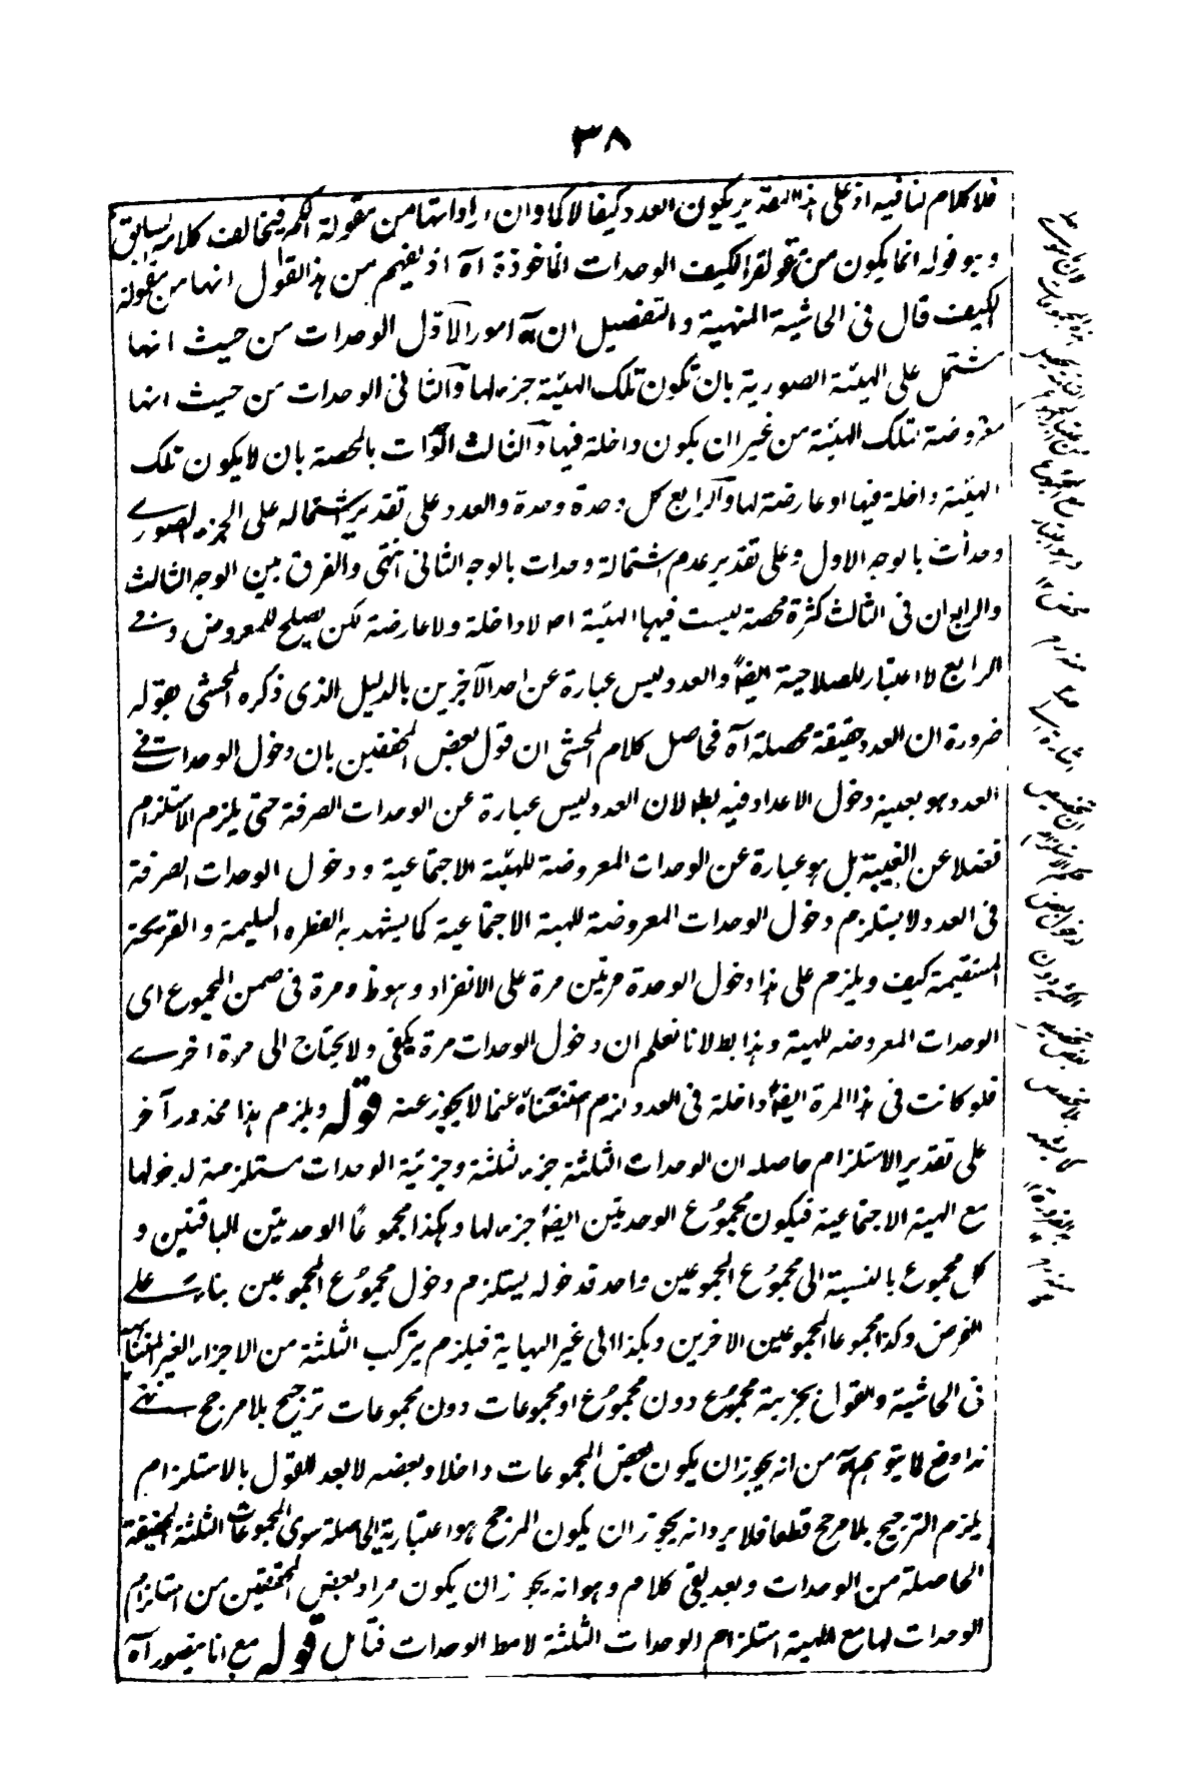 ٣٨
فلا كلام لنا فيه اذ على هذا التقدير يكون العدد كيفا لا كما وان اراد انها من مقولة الكم فيخالف كلامه السابق
وهو قوله انما يكون من مقولة الكيف الوحدات الماخوذة آه اذ يفهم من هذا القول انها من مقولة
الكيف قال فى الحاشية المنهية والتفصيل ان ههنا امور الاول الوحدات من حيث انها
مشتمل على الهيئة الصورية بان تكون تلك الهيئة جزء لها والثانى الوحدات من حيث انها
معروضة لتلك الهيئة من غير ان يكون داخلة فيها والثالث الوحدات بالمحصة بان لا يكون تلك
الهيئة داخلة فيها او عارضة لها والرابع كل وحدة وحدة والعدد على تقدير اشتماله على الجزء الصورى
وحدات بالوجه الاول وعلى تقدير عدم اشتماله وحدات بالوجه الثانى انتهى والفرق بين الوجه الثالث
والرابع ان فى الثالث كثرة محصة ليست فيها الهيئة اصلا داخلة ولا عارضة لكن يصلح للمعروض وفى
الرابع لا اعتبار للصلاحية ايضاً والعدد ليس عبارة عن احد الآخرين بالدليل الذى ذكره المحشى بقوله
ضرورة ان العدد حقيقة محصلة آه فحاصل كلام المحشى ان قول بعض المحققين بان دخول الوحدات فى
العدد هو بعينه دخول الاعداد فيه بط لان العدد ليس عبارة عن الوحدات الصرفة حتى يلزم الاستلزام
فضلا عن العينية بل هو عبارة عن الوحدات المعروضة للهيئة الاجتماعية ودخول الوحدات الصرفة
فى العدد لا يستلزم دخول الوحدات المعروضة للهيئة الاجتماعية كما يشهد به الفطره السليمة والقريحة
المستقيمة كيف ويلزم على هذا دخول الوحدة مرتين مرة على الانفراد وهو ظ ومرة فى ضمن المجموع اى
الوحدات المعروضه للهيئة وهذا بط لانا نعلم ان دخول الوحدات مرة يكفى ولا يحتاج الى مرة اخرى
فلو كانت فى هذا المرة ايضاً داخلة فى العدد لزم استغناؤه عما لا يجوز عنه قوله ويلزم هذا محذور آخر
على تقدير الاستلزام حاصله ان الوحدات الثلثة جزء لثلثة وجزئية الوحدات مستلزمة لدخولها
مع الهيئة الاجتماعية فيكون مجموع الوحدتين ايضاً جزء لها وهكذا مجموعا الوحدتين الباقيتين و
كل مجموع بالنسبة الى مجموع المجموعين واحد فدخوله يستلزم دخول مجموع المجموعين بناء على
الفرض وكذا مجموعا المجموعين الاخرين وهكذا الى غير النهاية فيلزم تركب الثلثة من الاجزاء الغير المتناهية
فى الحاشية والقول بجزئية مجموع دون مجموع او مجموعات دون مجموعات ترجيح بلا مرجح انتهى
هذا دفع لما يتوهم من انه يجوز ان يكون بعض المجموعات داخلا وبعضه لا بعد القول بالاستلزام
يلزم الترجيح بلا مرجح قطعا فلا يرد انه يجوز ان يكون المرجح هو اعتبارية الحاصلة سوى المجموعات الثلثة الحقيقة
الحاصلة من الوحدات وبعد بقى كلام وهو انه يجوز ان يكون مراد بعض المحققين من استلزام
الوحدات لها مع الهيئة استلزام الوحدات الثلثة لا مط الوحدات فتأمل قوله مع انا نتصور آه